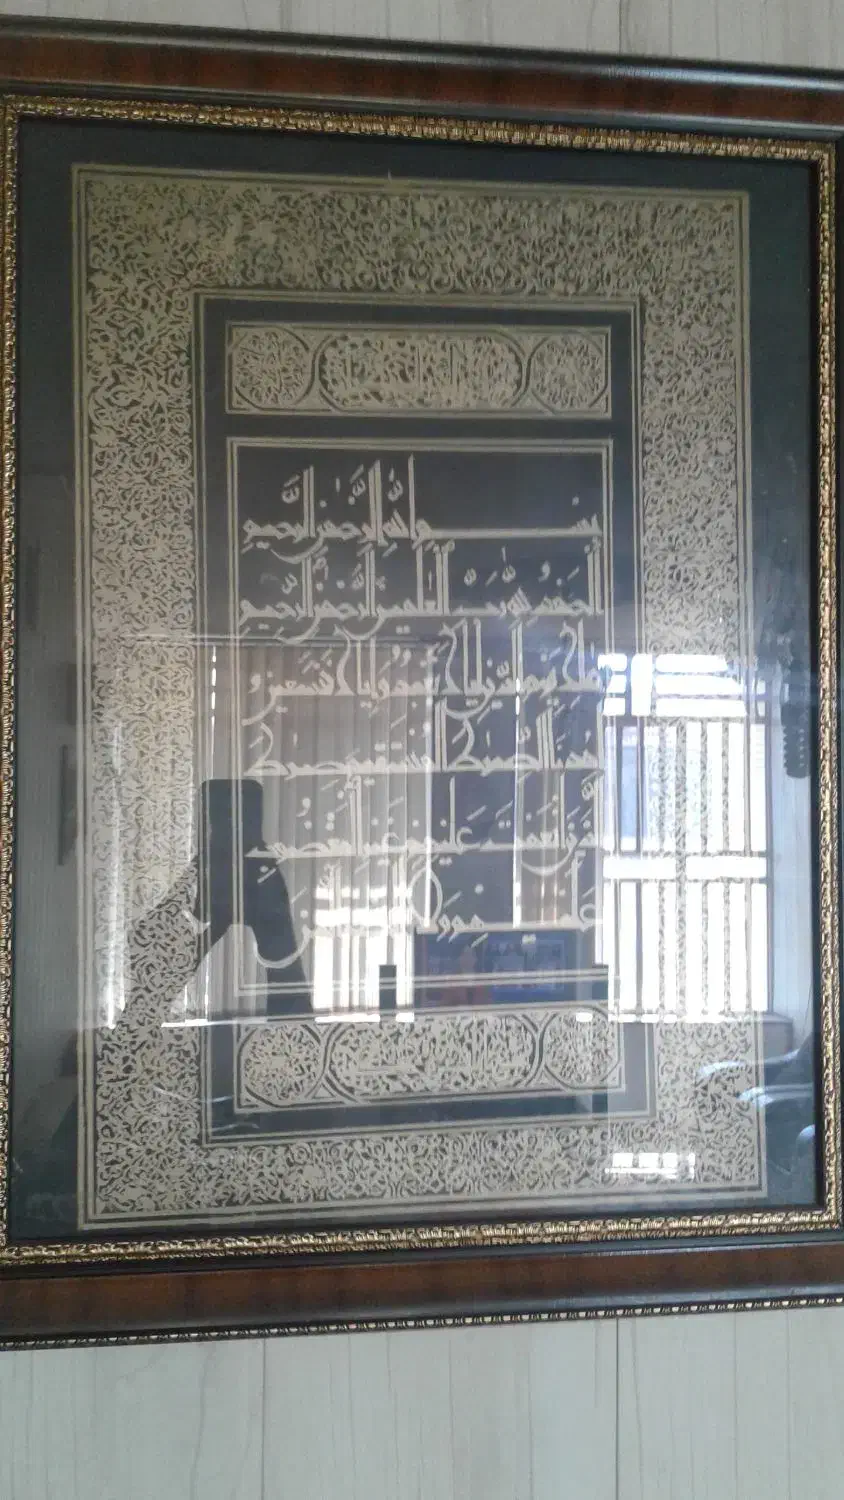 بسم الله الرحمن الرحيم
الحمد لله رب العلمين الرحمن الرحيم
ملك يوم الدين إياك نعبد وإياك نستعين
اهدنا الصرط المستقيم صرط
الذين أنعمت عليهم غير المغضوب
عليهم ولا الضالين